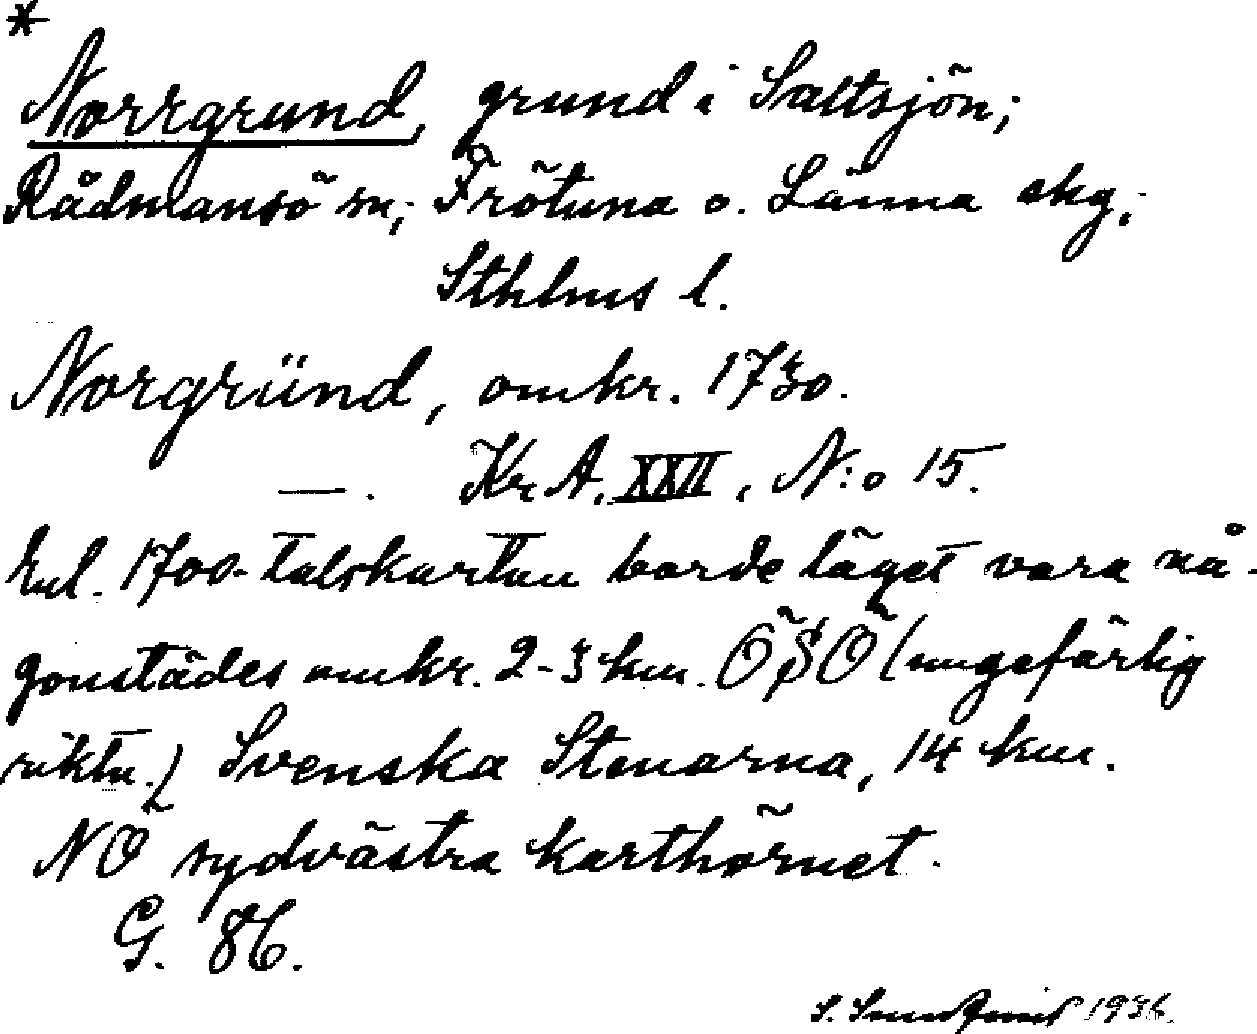 *
Norrgrund, grund i Saltsjön;
Rådmansö sn; Frötuna o. Länna skg;
Sthlms l.
Norgründ, omkr. 1730.
—. Kr A. XXII, N:o 15.
Enl. 1700-talskartan borde läget vara nå-
gonstädes omkr. 2-3 km. ÖSÖ (ungefärlig
riktn.) Svenska Stenarna, 14 km.
NÖ sydvästra karthörnet.
G. 86.
S. 1936.